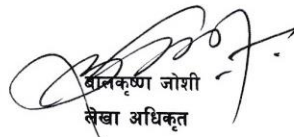 बालकृष्ण जोशी
लेखा अधिकृत